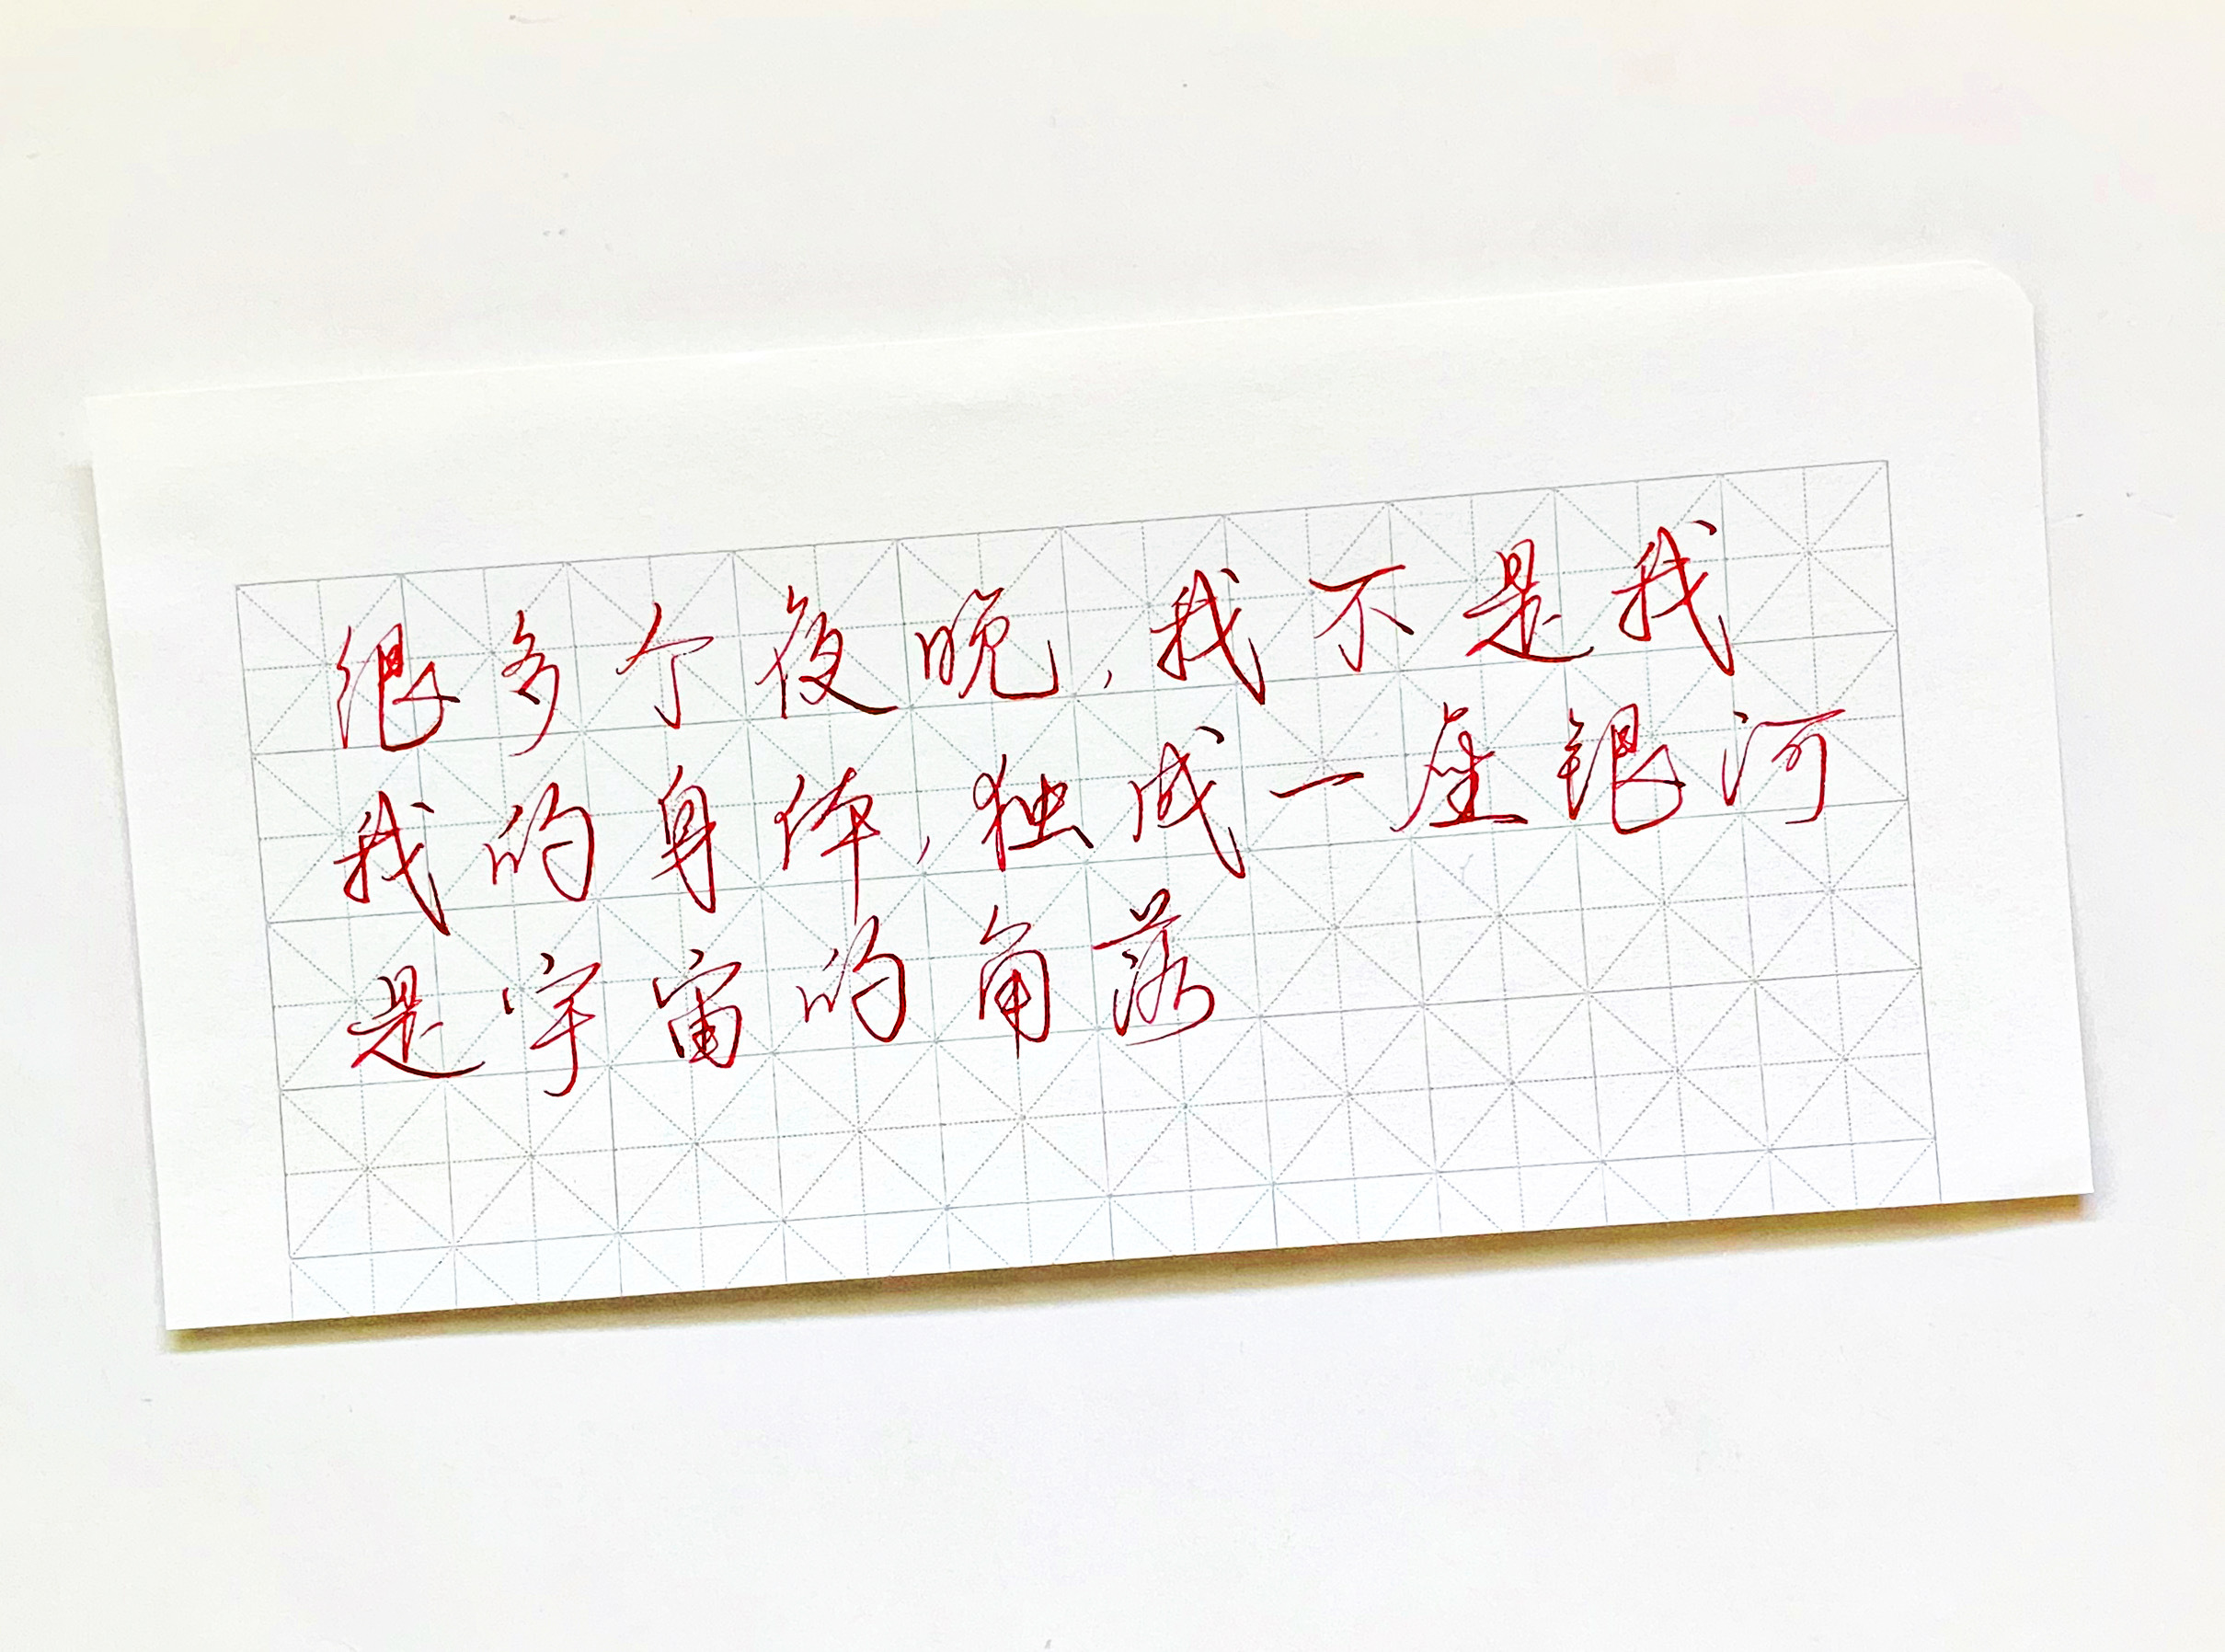 很多个夜晚,我不是我
我的身体,独成一座银河
是宇宙的角落